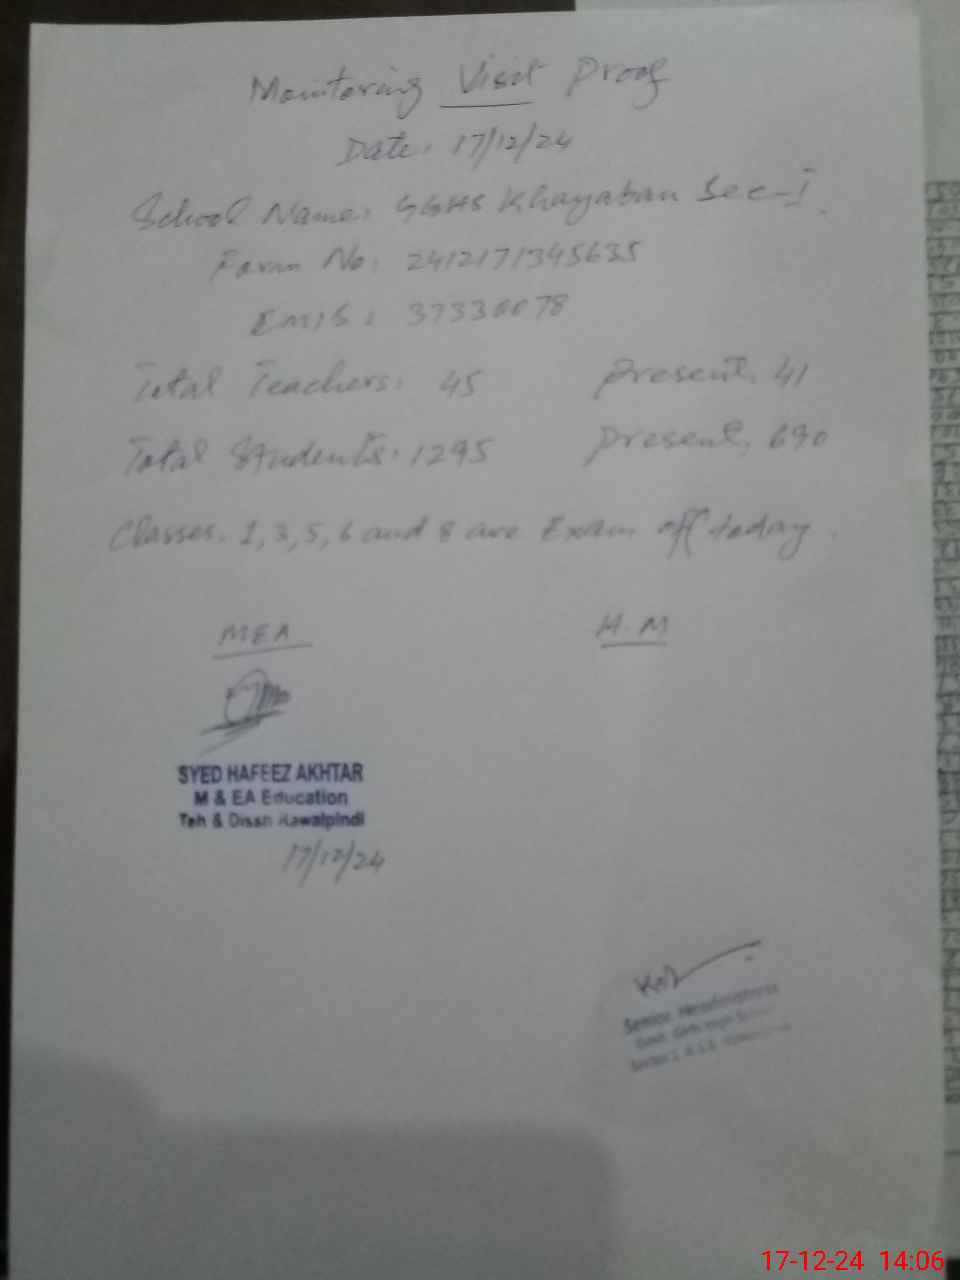 Monitoring Visit Proof
Date: 17/12/24
School Name: GGHS Khayaban Sec-I.
Farm No: 2412171345635
EMIS: 37330078
Total Teachers: 45 Present, 41
Total Students: 1295 Present, 690
Classes. 1, 3, 5, 6 and 8 are Exam off today.
MEA H.M
SYED HAFEEZ AKHTAR
M & EA Education
Teh & Disst: Rawalpindi
17/12/24
Senior Headmistress
Govt. Girls High School
17-12-24 14:06